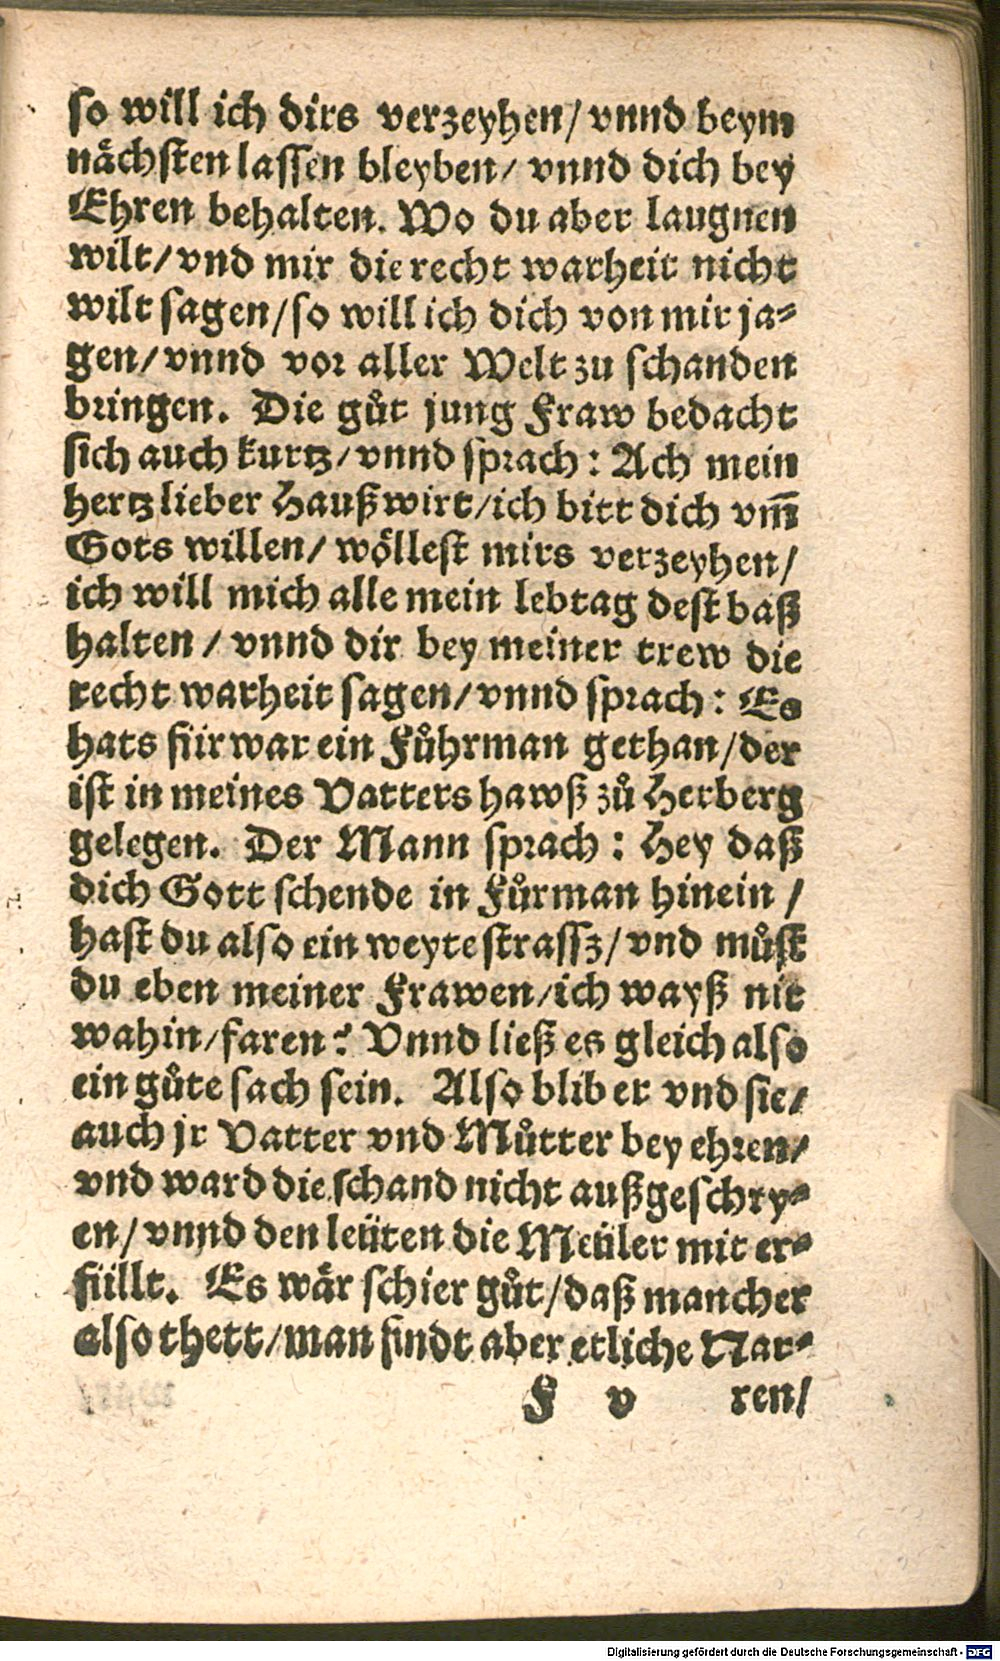 so will ich dirs verzeyhen/ vnnd beym
nächsten lassen bleyben/ vnnd dich bey
Ehren behalten. Wo du aber laugnen
wilt/ vnd mir die recht warheit nicht
wilt sagen/ so will ich dich von mir ja-
gen/ vnnd vor aller Welt zu schanden
bringen. Die gůt jung Fraw bedacht
sich auch kurtz/ vnnd sprach: Ach mein
hertz lieber Haußwirt/ ich bitt dich vm̅
Gots willen/ wöllest mirs verzeyhen/
ich will mich alle mein lebtag dest baß
halten/ vnnd dir bey meiner trew die
recht warheit sagen/ vnnd sprach: Es
hats fürwar ein Fůhrman gethan/ der
ist in meines Vatters hawß zů Herberg
gelegen. Der Mann sprach: Hey daß
dich Gott schende in Fůrman hinein/
hast du also ein weyte strassz/ vnd můst
du eben meiner Frawen/ ich wayß nit
wahin/ faren? Vnnd ließ es gleich also
ein gůte sach sein. Also blib er vnd sie/
auch jr Vatter vnd Můtter bey ehren/
vnd ward die schand nicht außgeschry-
en/ vnnd den leüten die Meüler mit er-
füllt. Es wär schier gůt/ daß mancher
also thett/ man findt aber etliche Nar-
F v ren/
Digitalisierung gefördert durch die Deutsche Forschungsgemeinschaft - DFG